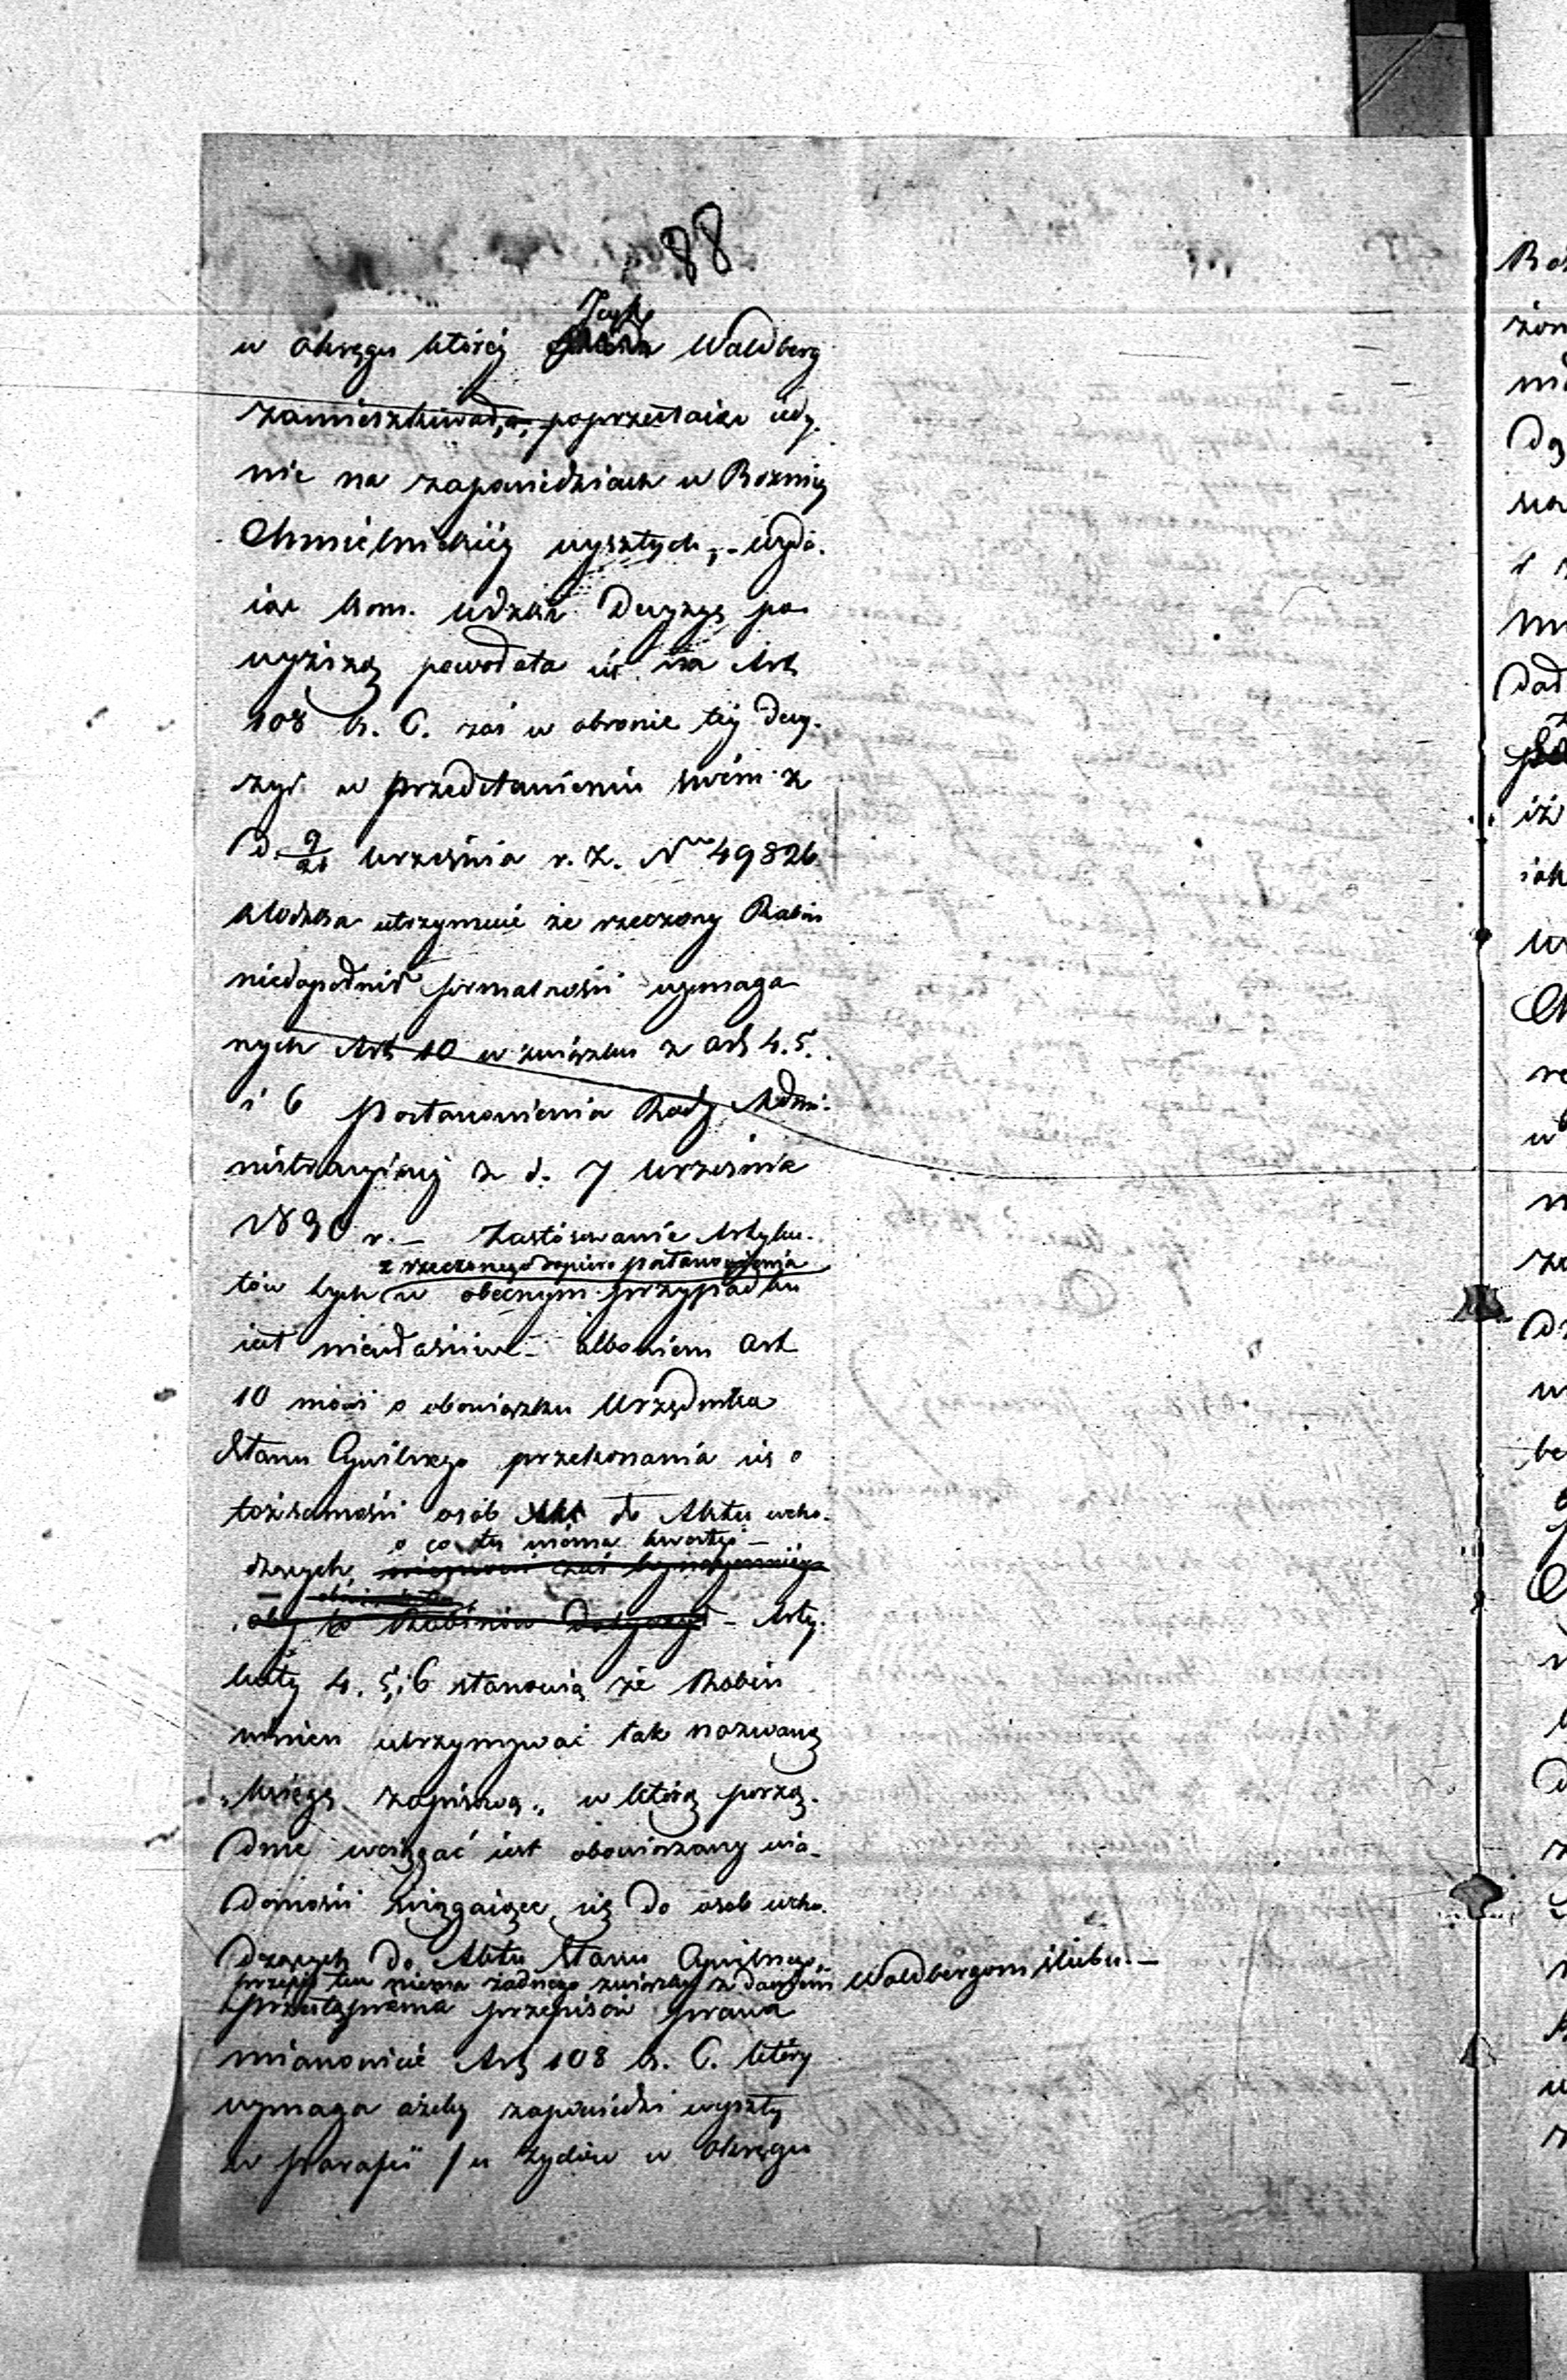 88
w okręgu której Joyk Waldberg
zamieszkiwała, poprzestaiąc iedy-
nie na zapowiedziach w Bożnicy
Chmielnickiéj wyszłych, - wyda-
iąc kom. udział Decyzyą po-
wyższą powołała się na Art
108 k. C. zaś w obronie téj decy-
zyi w przedstawieniu swém z
D. 9/21 Września r. z. Nro 49826
utrzymuie że rzeczony Rabin
niedopełnił formalności wymaga-
nych Art 10 w związku z art 4. 5.
i 6 Postanowienia Rady Admi-
nistracyinéj z d. 7 Września
1830 r. — Zastósowanie Artyku-
z rzeczonego dopiero postanowienia
łów tych w obecnym przypadku
iest niewłaściwe - albowiem Art
10 mówi o obowiązku Urzędnika
Stanu Cywilnego przekonania się o
tożsamości osób do Aktu wcho-
o co tu niema kwestyi -
dzących,
aby to Rabinów dotyczyć - Arty-
kuły 4. 5. i 6 stanowią że Rabin
winien utrzymywać tak nazwaną
„księgę zapisową„ w którą porzą-
dnie wciągać iest obowiązany wia-
domości ściągaiące się do osób wcho-
dzących do Aktu Stanu Cywilnego,
przepis ten niema żadnego związku z danym Waldbergom ślubu. —
przestąpienia przepisów prawa
mianowicie Art 108 k. C. który
wymaga ażeby zapowiedzi wyszły
w parafii / u Żydów w Okręgu